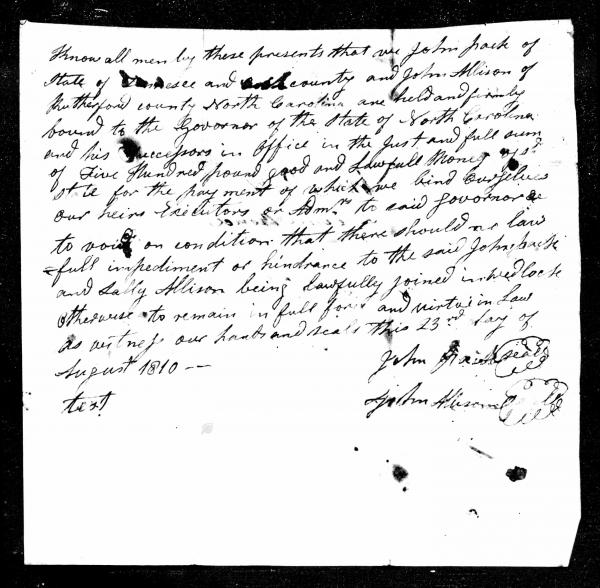 Know all men by these presents that we John Jack of
State of and county and John Allison of
Rutherford county North Carolina are held and firmly
bound to the Governor of the State of North Carolina
and his Successors in Office in the Just and full sum
of Five Hundred pound good and Lawfull Money of sd
state for the payment of which we bind Ourselves
our heirs Executors or Admrs to said governor &c
to void on condition that there should no law
full impediment or hindrance to the said John Jack
and Sally Allison being Lawfully joined in wedlock
Otherwise to remain in full force and virtue in Law
as witness our hands and seals this 23rd day of
August 1810 —
John Jack seal
test
John Allison seal